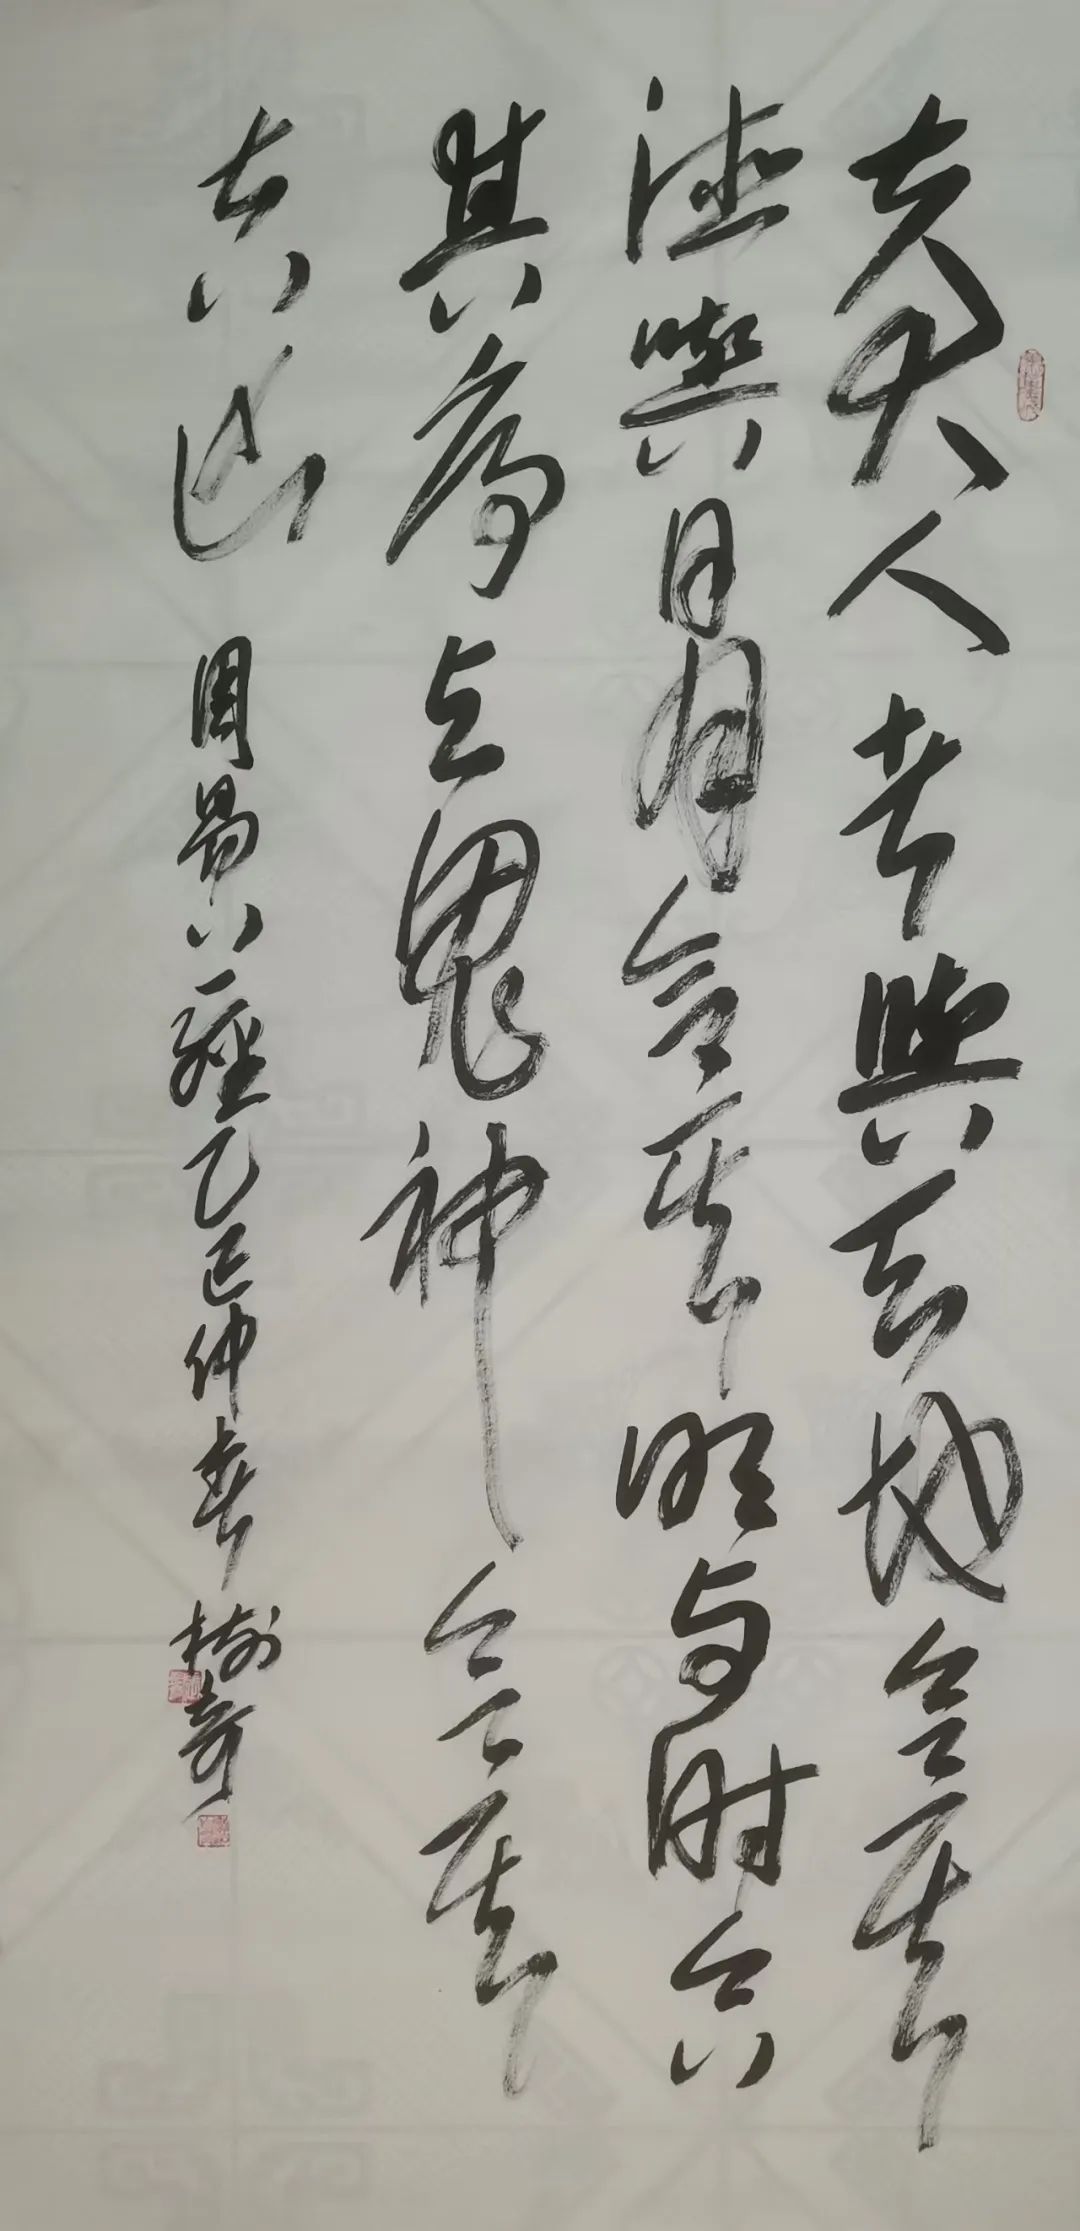 夫大人者與天地合其
德與日月合其明与时合
其序与鬼神合其
吉凶 周易六經乙巳仲春樹奇